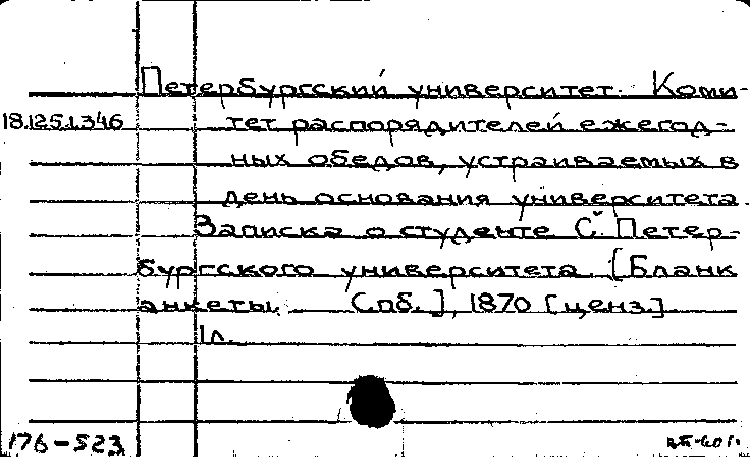 Петербургский университет. Коми-
18.125.1.346 тет распорядителей ежегод-
ных обедов, устраиваемых в
день основания университета.
Записка о студенте С. Петер-
бургского университета. [Бланк
анкеты. Спб.], 1870 [ценз.]
1 л.
176-523